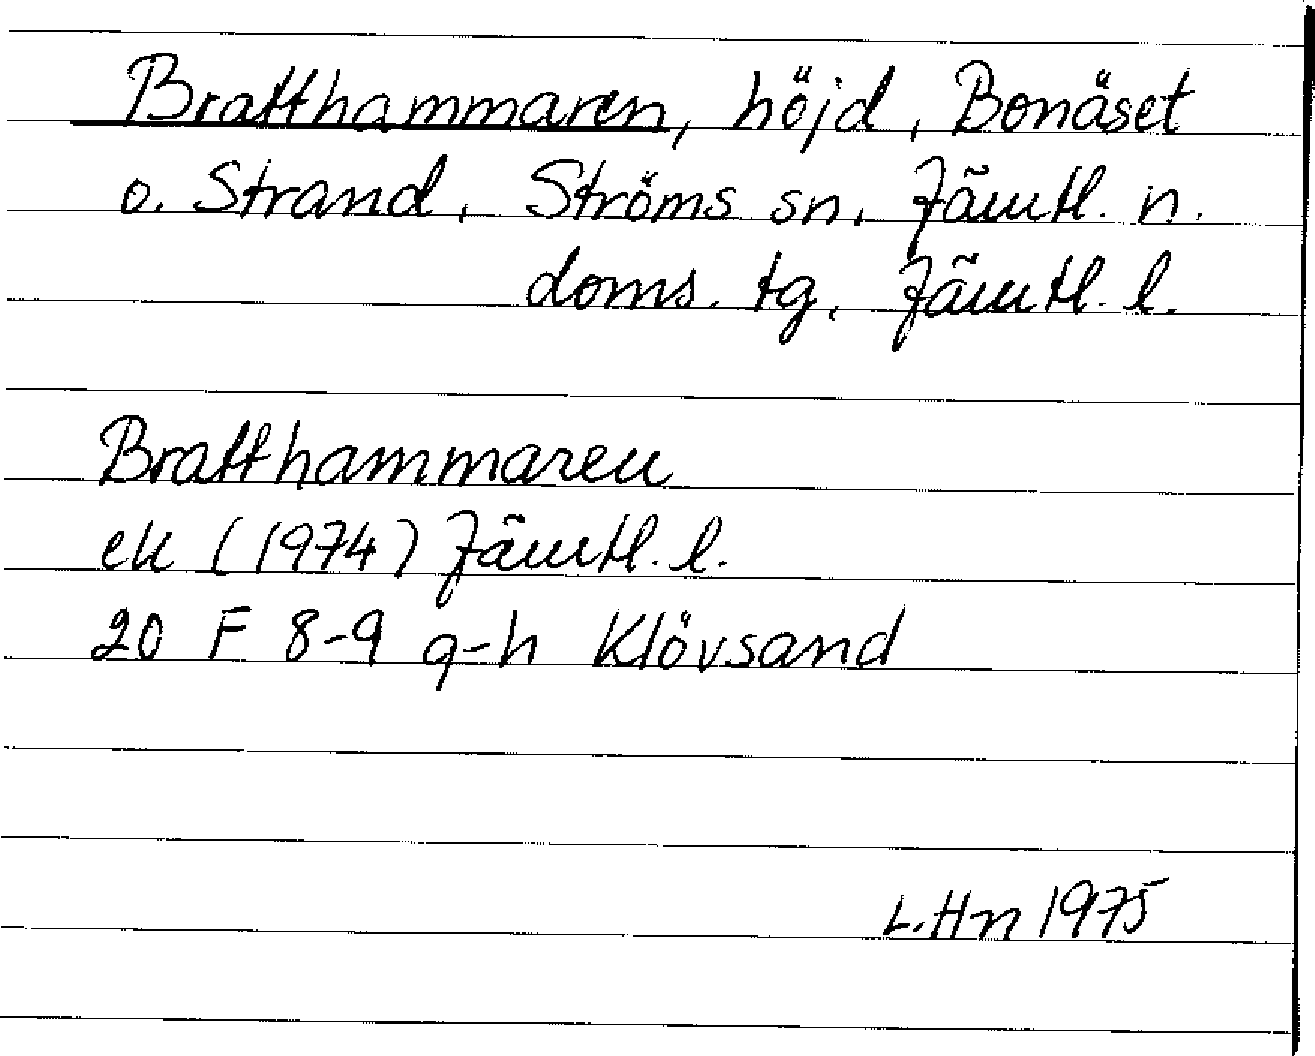 Bratthammaren, höjd, Bonäset
o. Strand, Ströms sn, Jämtl. n.
doms. tg, Jämtl. l.
Bratthammaren
ek (1974) Jämtl. l.
20 F 8-9 g-h Klövsand
L. Hn 1975